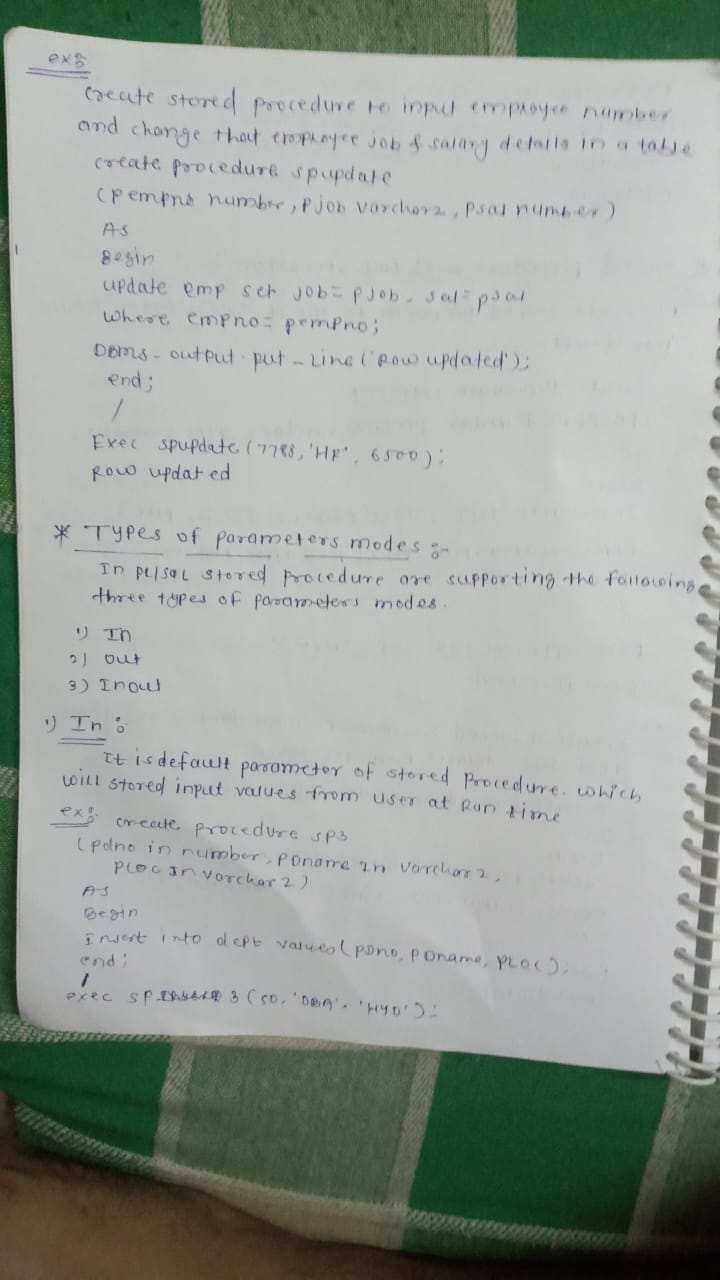 ex:
Create stored procedure to input employee number
and change that employee job & salary details in a table
create procedure spupdate
(pempno number, pjob varchar2, psal number)
As
Begin
update emp set job = pjob, sal = psal
where empno = pempno;
DBMS - output . put - Line ('Row updated');
end;
/
Exec spupdate (7788, 'HR', 6500);
Row updated
* Types of parameters modes :-
In PL/SQL stored procedure are supporting the following
three types of parameters modes.
1) In
2) out
3) Inout
1) In :
It is default parameter of stored procedure. which
will stored input values from user at Run time
ex: create procedure sp3
(pdno in number, pdname in varchar2,
ploc In varchar2)
As
Begin
Insert into dept values (pdno, pdname, ploc);
end;
/
exec sp 3 (50, 'DBA', 'HYD');